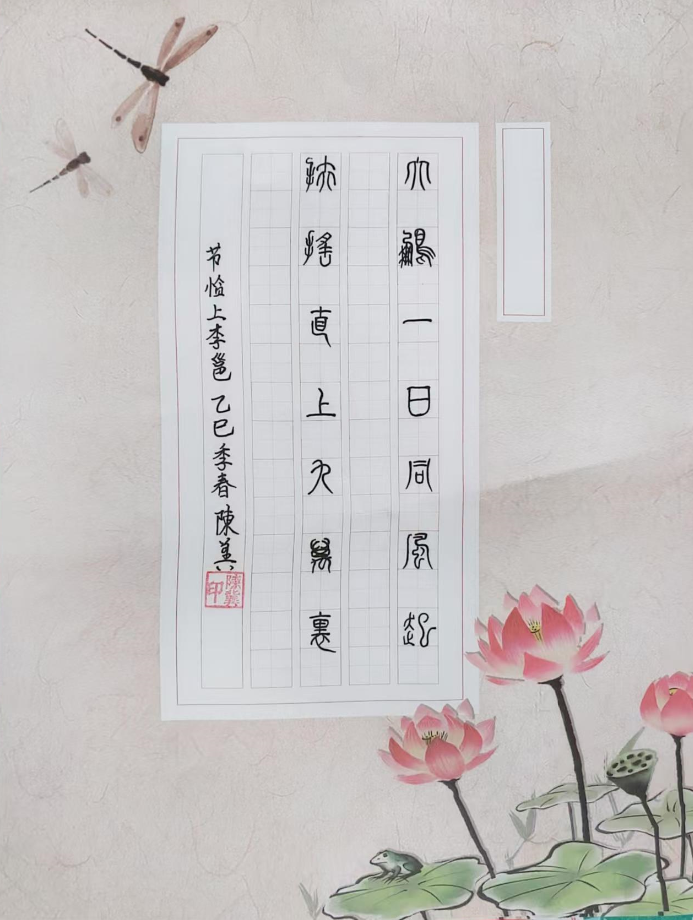 大鵬一日同風起
扶搖直上九萬裏
节上李邕 乙巳季春 陳